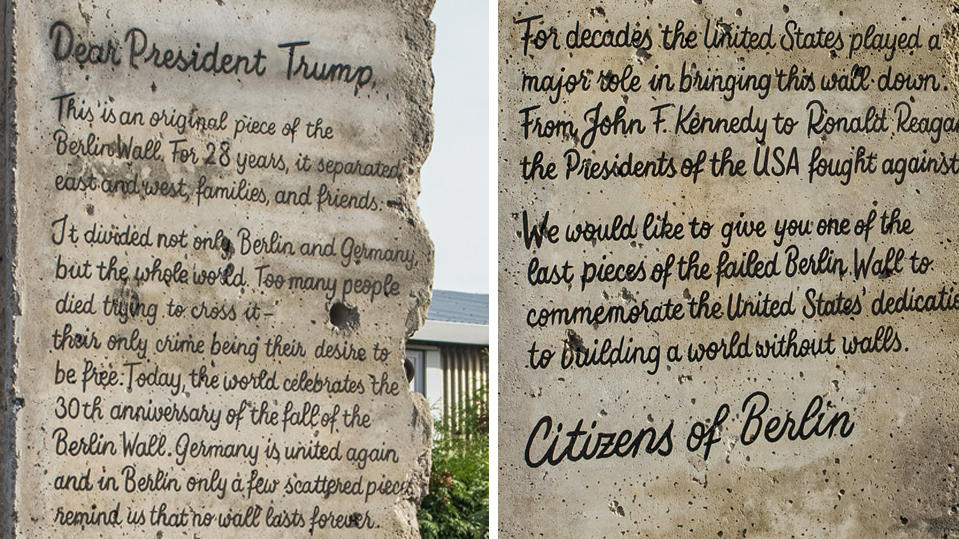 Dear President Trump,
This is an original piece of the
Berlin Wall. For 28 years, it separated
east and west, families, and friends.
It divided not only Berlin and Germany,
but the whole world. Too many people
died trying to cross it –
their only crime being their desire to
be free. Today, the world celebrates the
30th anniversary of the fall of the
Berlin Wall. Germany is united again
and in Berlin only a few scattered piec
remind us that no wall lasts forever.
For decades the United States played a
major role in bringing this wall down.
From John F. Kennedy to Ronald Reaga
the Presidents of the USA fought against
We would like to give you one of the
last pieces of the failed Berlin Wall to
commemorate the United States' dedicatio
to building a world without walls.
Citizens of Berlin